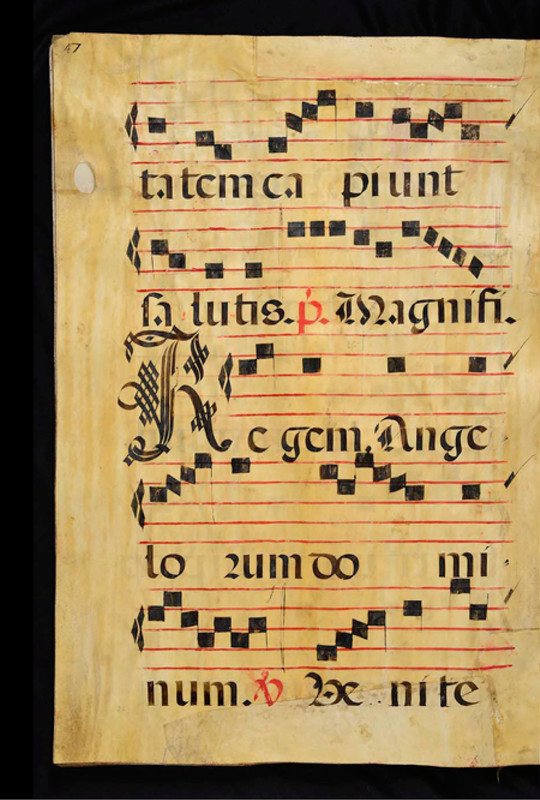 47
tatem ca piunt
sa lutis. p. Magnifi.
Re gem, Ange
lo rum do mi
num. V Ve ni te